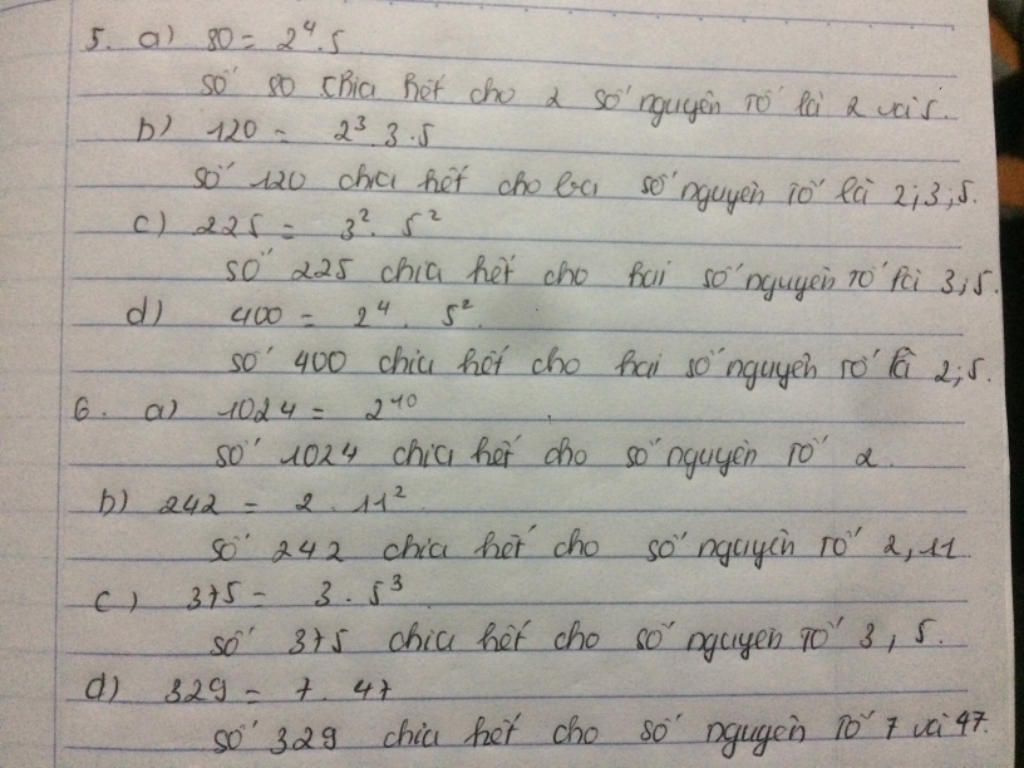 5. a) 80 = 2⁴.5
số 80 chia hết cho 2 số nguyên tố là 2 và 5.
b) 120 = 2³.3.5
số 120 chia hết cho ba số nguyên tố là 2;3;5.
c) 225 = 3². 5²
số 225 chia hết cho hai số nguyên tố là 3;5.
d) 400 = 2⁴. 5².
số 400 chia hết cho hai số nguyên tố là 2;5.
6. a) 1024 = 2¹⁰
số 1024 chia hết cho số nguyên tố 2.
b) 242 = 2 . 11²
số 242 chia hết cho số nguyên tố 2, 11.
c) 375 = 3 . 5³
số 375 chia hết cho số nguyên tố 3, 5.
d) 329 = 7 . 47
số 329 chia hết cho số nguyên tố 7 và 47.